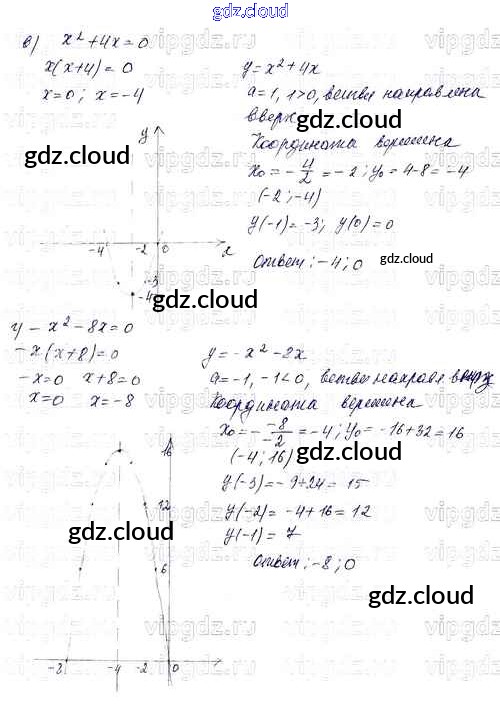 gdz.cloud
в) x² + 4x = 0
x(x+4) = 0
x = 0; x = -4
y = x² + 4x
a = 1, 1>0, ветви направлена
вверх
Координата вершина
x₀ = -4/2 = -2; y₀ = 4-8 = -4
(-2; -4)
y(-1) = -3; y(0) = 0
Ответ: -4; 0
y
-4 -2 0 x
-3
-4
gdz.cloud
gdz.cloud
gdz.cloud
г) - x² - 8x = 0
-x(x+8) = 0
-x = 0 x+8 = 0
x = 0 x = -8
y = -x² - 8x
a = -1, -1<0, ветви направл вниз
Координата вершина
x₀ = - -8/-2 = -4; y₀ = -16+32 = 16
(-4; 16)
y(-3) = -9+24 = 15
y(-2) = -4+16 = 12
y(-1) = 7
Ответ: -8; 0
16
12
6
-8 -4 -2 0
gdz.cloud
gdz.cloud
gdz.cloud